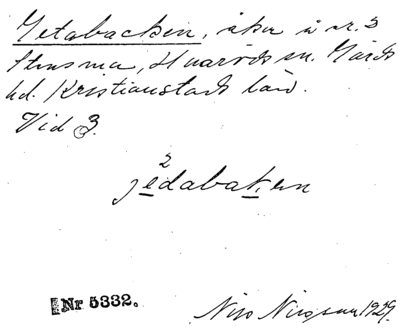 Getabacken, åker å nr. 3
Strusma, Huaröds sn. Gärds
hd. Kristianstads län.
Vid 3.
2
jedabaken
Nr 5332.
Nils Nilsson 1929.